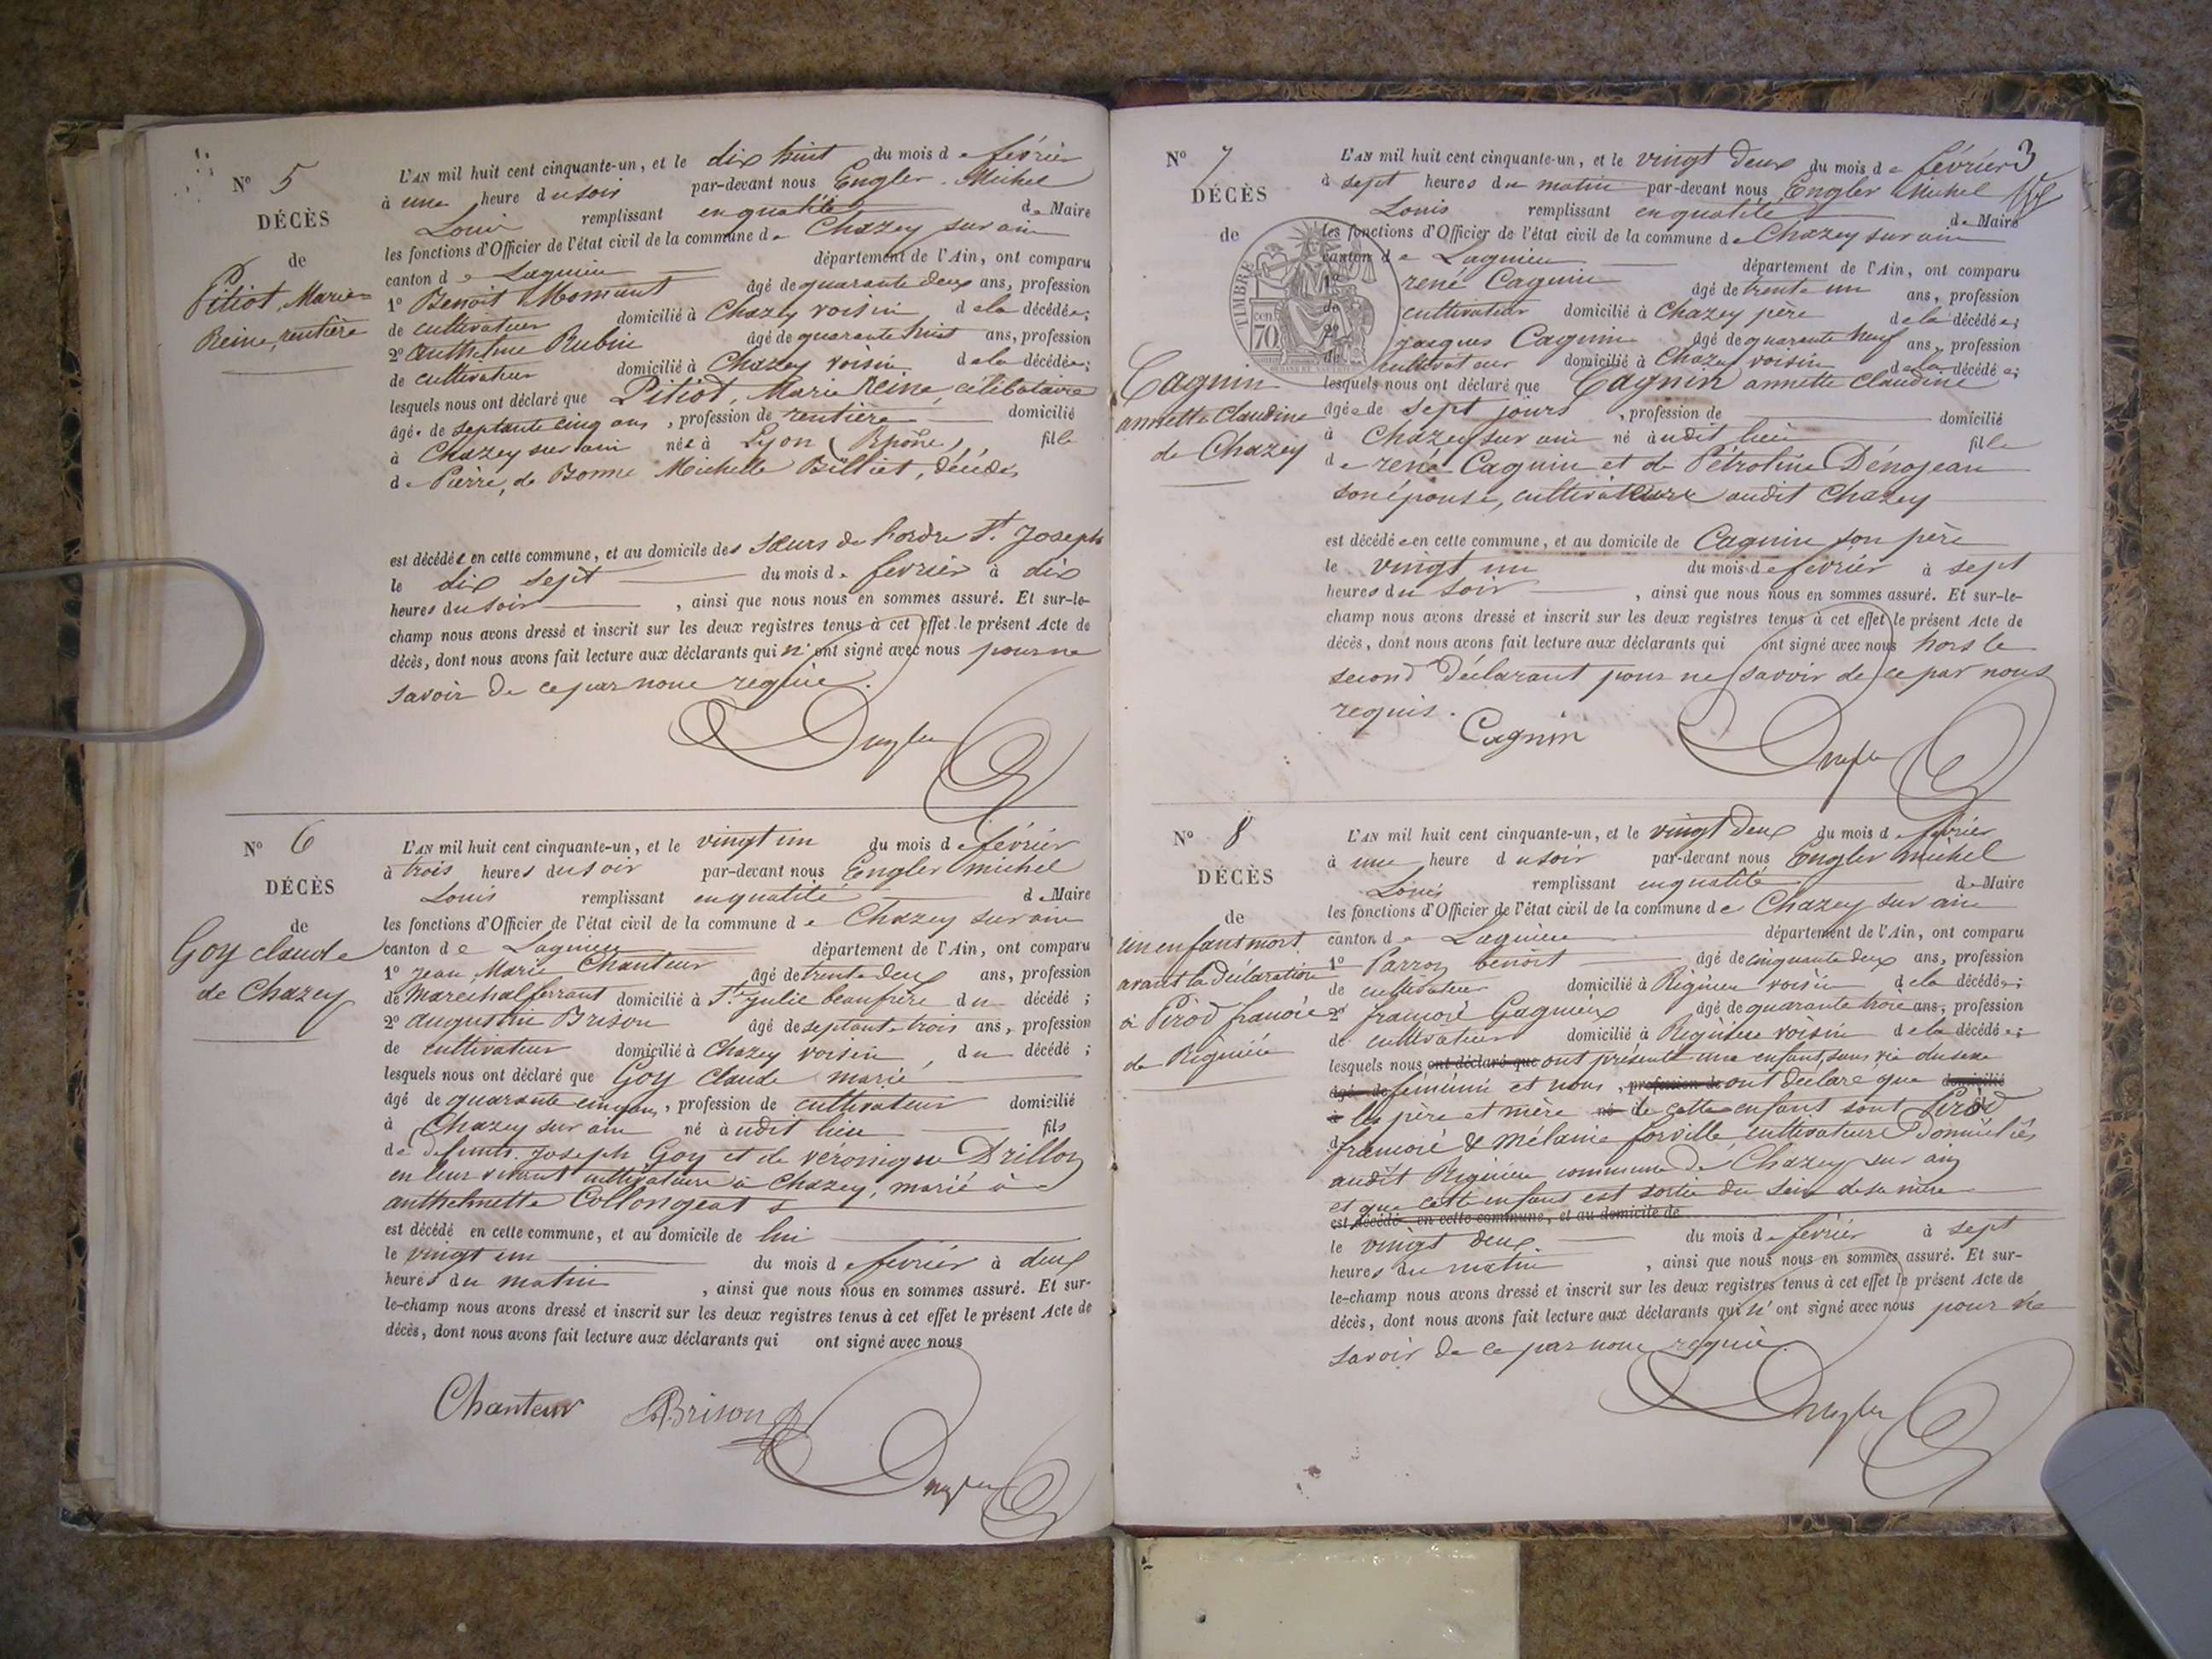 N° 5
DÉCÈS
de
Pitiot, Marie
Reine, rentière
L'AN mil huit cent cinquante-un, et le dix huit du mois de février
à une heure du soir par-devant nous Engler Michel
Louis remplissant en qualité de Maire
les fonctions d'Officier de l'état civil de la commune de Chazey sur ain
canton de Lagnieu département de l'Ain, ont comparu
1° Benoit Momant âgé de quarante deux ans, profession
de cultivateur domicilié à Chazey voisin de la décédée;
2° Anthelme Rubin âgé de quarante huit ans, profession
de cultivateur domicilié à Chazey voisin de la décédée;
lesquels nous ont déclaré que Pitiot, Marie Reine, célibataire
âgée de septante cinq ans, profession de rentière domicilié
à Chazey sur ain née à Lyon (Rhône), fille
de Pierre, de Bonne Michelle Billiet, décédés
est décédée en cette commune, et au domicile des sœurs de l'ordre St. Joseph
le dix sept du mois de fevrier à dix
heures du soir, ainsi que nous nous en sommes assuré. Et sur-le-
champ nous avons dressé et inscrit sur les deux registres tenus à cet effet le présent Acte de
décès, dont nous avons fait lecture aux déclarants qui n'ont signé avec nous pour ne
savoir de ce par nous requis.
Engler
N° 6
DÉCÈS
de
Goy claude
de Chazey
L'AN mil huit cent cinquante-un, et le vingt un du mois de février
à trois heures du soir par-devant nous Engler michel
Louis remplissant en qualité de Maire
les fonctions d'Officier de l'état civil de la commune de Chazey sur ain
canton de Lagnieu département de l'Ain, ont comparu
1° Jean Marie Chanteur âgé de trente deux ans, profession
de Maréchal ferrant domicilié à Ste. Julie beaufrère du décédé;
2° augustin Brison âgé de septante trois ans, profession
de cultivateur domicilié à Chazey voisin, du décédé;
lesquels nous ont déclaré que Goy Claude marié
âgé de quarante cinq ans, profession de cultivateur domicilié
à Chazey sur ain né audit lieu fils
de defunts Joseph Goy et de véronique Drillon
en leur vivant cultivateurs à Chazey, marié à
anthelmette Collongeat
est décédé en cette commune, et au domicile de lui
le vingt un du mois de fevrier à deux
heures du matin, ainsi que nous nous en sommes assuré. Et sur-
le-champ nous avons dressé et inscrit sur les deux registres tenus à cet effet le présent Acte de
décès, dont nous avons fait lecture aux déclarants qui ont signé avec nous
Chanteur Brison
Engler
3
N° 7
DÉCÈS
de
TIMBRE
cen 70
Cagnin
annette Claudine
de Chazey
L'AN mil huit cent cinquante-un, et le vingt deux du mois de février
à sept heures du matin par-devant nous Engler Michel
Louis remplissant en qualité de Maire
les fonctions d'Officier de l'état civil de la commune de Chazey sur ain
canton de Lagnieu département de l'Ain, ont comparu
1° rené Cagnin âgé de trente un ans, profession
de cultivateur domicilié à Chazey père de la décédée;
2° jacques Cagnin âgé de quarante neuf ans, profession
de cultivateur domicilié à Chazey voisin de la décédée;
lesquels nous ont déclaré que Cagnin annette Claudine
âgée de sept jours, profession de domicilié
à Chazey sur ain né audit lieu fille
de rené Cagnin et de Pétroline Dénojean
son épouse, cultivateurs audit Chazey
est décédée en cette commune, et au domicile de Cagnin son père
le vingt un du mois de février à sept
heures du soir, ainsi que nous nous en sommes assuré. Et sur-le-
champ nous avons dressé et inscrit sur les deux registres tenus à cet effet le présent Acte de
décès, dont nous avons fait lecture aux déclarants qui ont signé avec nous hors le
second Déclarant pour ne savoir de ce par nous
requis.
Cagnin Engler
N° 8
DÉCÈS
de
un enfant mort
avant la déclaration
à Pirod françois
de Rignieu
L'AN mil huit cent cinquante-un, et le vingt deux du mois de fevrier
à une heure du soir par-devant nous Engler michel
Louis remplissant en qualité de Maire
les fonctions d'Officier de l'état civil de la commune de Chazey sur ain
canton de Lagnieu département de l'Ain, ont comparu
1° Parroz benoit âgé de cinquante deux ans, profession
de cultivateur domicilié à Rignieu voisin de la décédée;
2° françois Gagnieux âgé de quarante trois ans, profession
de cultivateur domicilié à Rignieu voisin de la décédée;
lesquels nous ont déclaré que ont présenté une enfant, sans vie du sexe
âgé de féminin et nous, profession de ont déclaré que domicilié
à les père et mère né de cette enfant sont Pirod
françois & Mélanie forville cultivateurs Domiciliés
audit Rignieu commune de Chazey sur ain
et que cette enfant est sortie du sein de sa mère
est décédé en cette commune, et au domicile de
le vingt deux du mois de février à sept
heures du matin, ainsi que nous nous en sommes assuré. Et sur-
le-champ nous avons dressé et inscrit sur les deux registres tenus à cet effet le présent Acte de
décès, dont nous avons fait lecture aux déclarants qui n'ont signé avec nous pour ne
savoir de ce par nous requis.
Engler